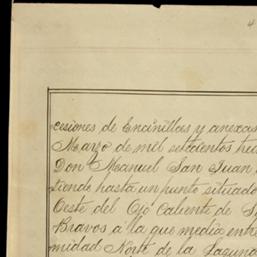 4
cesiones de Encinillas y anexas
Marzo de mil setecientos
Don Manuel San Juan
tiende hasta un punto situado
Oeste del Ojo Caliente de
Bravos á la que media entre
midad Norte de la Laguna